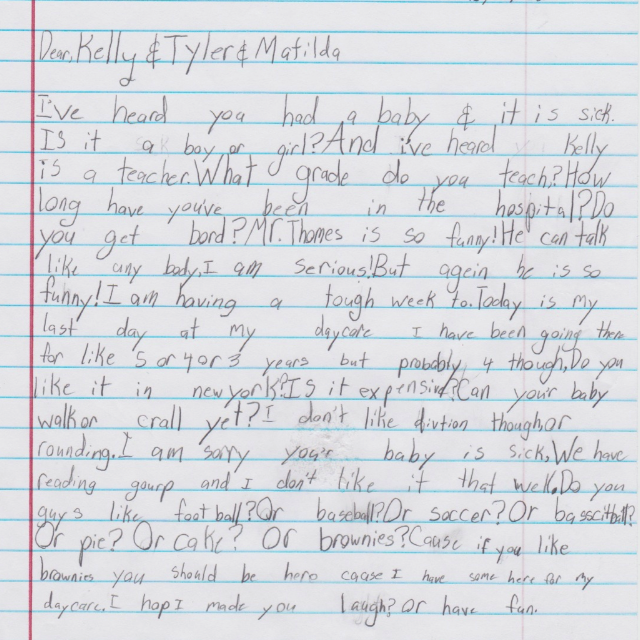 Dear, Kelly & Tyler & Matilda
I've heard you had a baby & it is sick.
IS it a boy or girl? And i've heard Kelly
is a teacher. What grade do you teach? How
long have youve been in the hospital? Do
you get bord? Mr. Thomes is so funny! He can talk
like any body. I am serious! But agein he is so
funny! I am having a tough week to. Today is my
last day at my daycare I have been going there
for like 5 or 4 or 3 years but probably 4 though. Do you
like it in new york? IS it expensiv? Can your baby
walk or crall yet? I don't like divtion though, or
rounding. I am sorry your baby is sick. We have
reading gourp and I don't like it that well. Do you
guys like foot ball? Or baseball? Or soccer? Or basscitball?
Or pie? Or cake? Or brownies? Cause if you like
brownies you should be hero cause I have some here for my
daycare. I hop I made you laugh? or have fun.